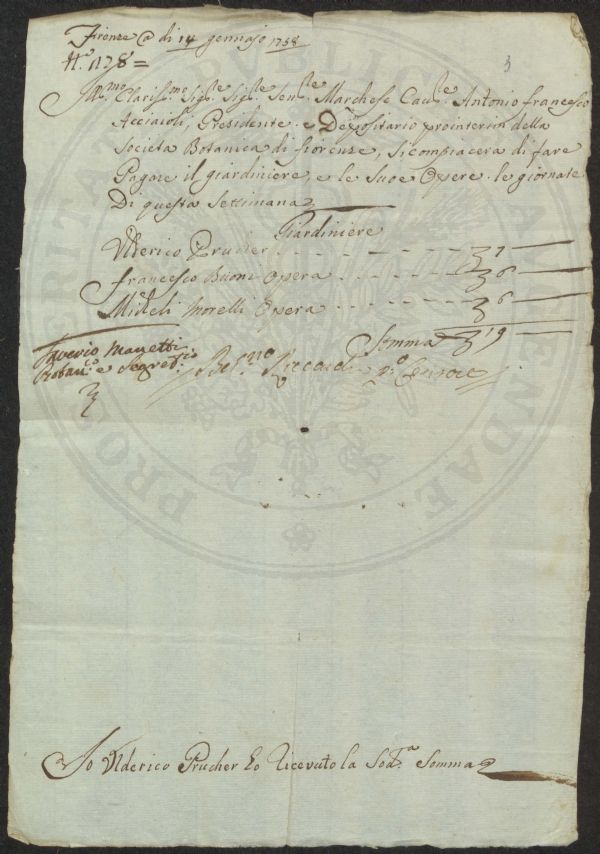 Firenze @ di 14 gennajo 1758
3
N.º 128 =
Ill.mo Claris.mo Sig.re Sig.re Sen.re Marchese Cav.re Antonio francesco
Acciaioli, Presidente e Depositario prointerim della
Societa Botanica di fiorenze, si compiacera di fare
Pagare il giardiniere, e le Sue Opere le giornate
Di questa Settimana
Giardiniere
Ulderico Prucher - - - - 7 —
francesco Buoni Opera - - - - 6 —
Micheli Morelli Opera - - - - 6 —
Somma 19 —
Saverio Manetti
Botan.co e Segret.io
Io Ulderico Prucher ho Ricevuto la Sod.a Somma
PUBLICAE
PROSPERITATI
AUGENDAE